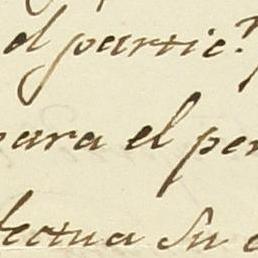 el partic.r
para el per
fectua su c